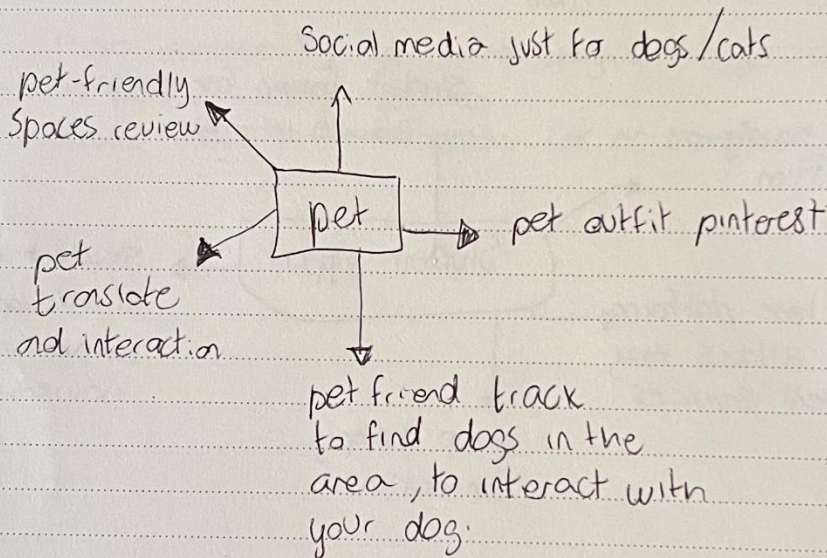 Social media just for dogs/cats
pet-friendly
spaces review
pet
pet outfit pinterest
pet
translate
and interaction
pet friend track
to find dogs in the
area, to interact with
your dog.